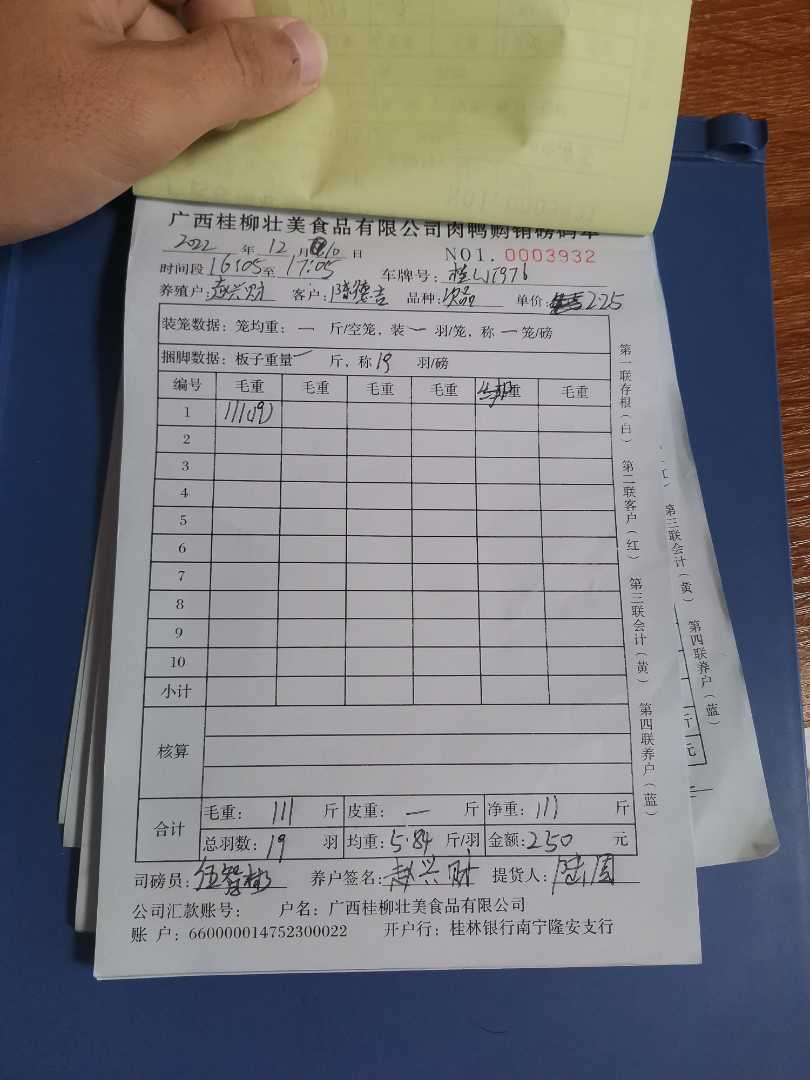 广西桂柳壮美食品有限公司肉鸭购销磅码单
2022 年 12 月 10 日 NO1. 0003932
时间段 16:05 至 17:05 车牌号:
养殖户: 赵兴财 客户: 陆德吉 品种: 次品 单价: 2.25
装笼数据: 笼均重: 一 斤/空笼, 装 一 羽/笼, 称 一 笼/磅
捆脚数据: 板子重量 一 斤, 称 19 羽/磅
编号 毛重 毛重 毛重 毛重 重 毛重
1 111(19)
2
3
4
5
6
7
8
9
10
小计
核算
合计 毛重: 111 斤 皮重: 一 斤 净重: 111 斤
总羽数: 19 羽 均重: 5.84 斤/羽 金额: 250 元
司磅员: 养户签名: 赵兴财 提货人:
公司汇款账号: 户名: 广西桂柳壮美食品有限公司
账 户: 660000014752300022 开户行: 桂林银行南宁隆安支行
第一联存根(白) 第二联客户(红) 第三联会计(黄) 第四联养户(蓝)
第三联会计(黄) 第四联养户(蓝)
斤
元